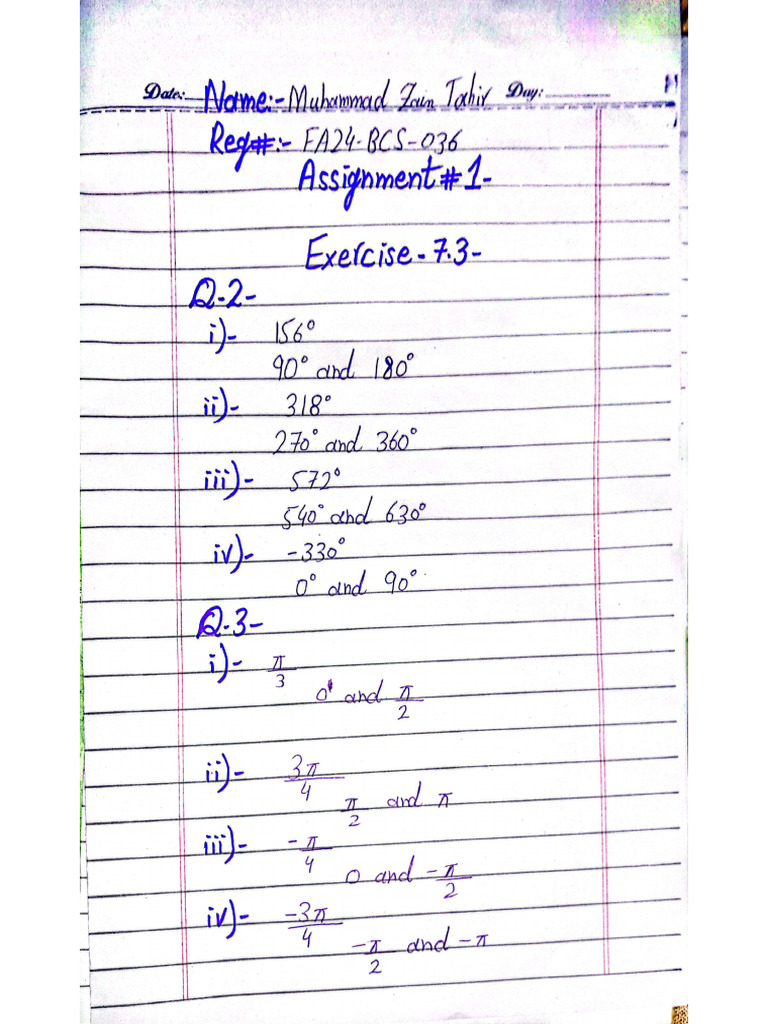 Date:- Name:- Muhammad Zain Tahir Day:
Reg#:- FA24-BCS-036
Assignment #1-
Exercise-7.3-
Q-2-
i)- 156°
90° and 180°
ii)- 318°
270° and 360°
iii)- 572°
540° and 630°
iv)- -330°
0° and 90°
Q-3-
i)- π/3
0 and π/2
ii)- 3π/4
π/2 and π
iii)- -π/4
0 and -π/2
iv)- -3π/4
-π/2 and -π